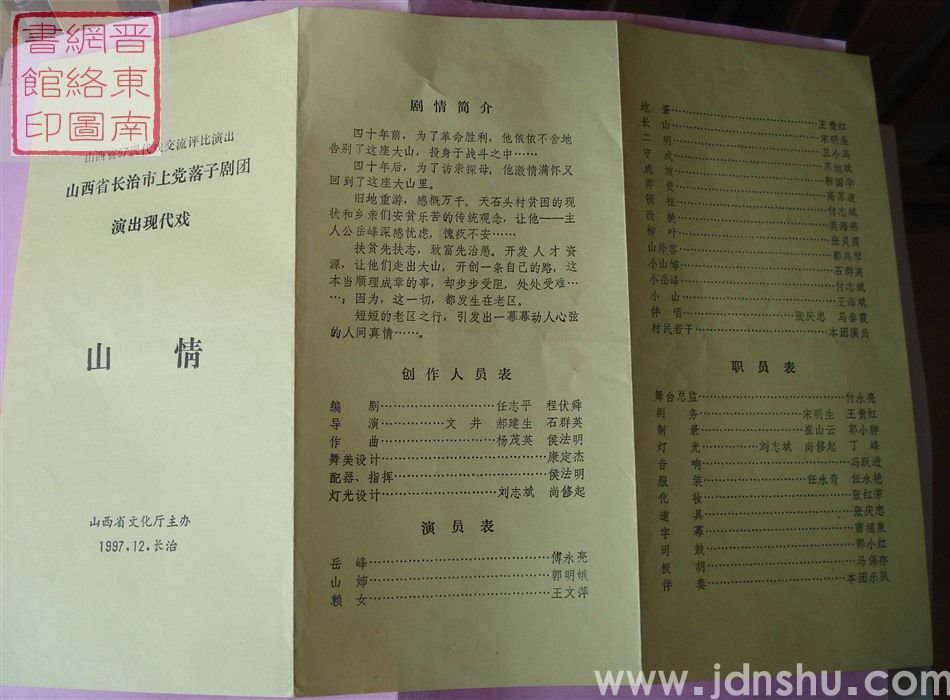 晋東南
網絡圖
書館印
山西省97现代戏交流评比演出
山西省长治市上党落子剧团
演出现代戏
山 情
山西省文化厅主办
1997.12.长治
剧情简介
四十年前，为了革命胜利，他依依不舍地
告别了这座大山，投身于战斗之中……
四十年后，为了访亲探母，他激情满怀又
回到了这座大山里。
旧地重游，感慨万千。天石头村贫困的现
状和乡亲们安贫乐苦的传统观念，让他——主
人公岳峰深感忧虑，愧疚不安……
扶贫先扶志，致富先治愚。开发人才资
源，让他们走出大山，开创一条自己的路，这
本当顺理成章的事，却步步受阻，处处受难…
…；因为，这一切，都发生在老区。
短短的老区之行，引发出一幕幕动人心弦
的人间真情……。
创作人员表
编 剧……………任志平 程伏舜
导 演………文 井 郝建生 石群英
作 曲……………杨茂英 侯法明
舞美设计……………………康定杰
配器、指挥…………………侯法明
灯光设计……………刘志斌 尚修起
演员表
岳 峰………………………傅永亮
山 婶………………………郭明娥
赖 女………………………王文萍
圪 蛋………………………王贵红
长 山………………………宋明生
二 明………………………卫小马
守 成………………………苏旭斌
成 坡………………………靳国华
莽 贵………………………高苏波
锁 柱………………………付志斌
改 桃………………………莫海燕
柳 叶………………………张灵霞
山外客………………………郭兵琴
小山婶………………………石群英
小岳峰………………………付志斌
小 山………………………王海斌
伴 唱………………张庆忠 马春霞
村民若干……………………本团演员
职员表
舞台总监……………………付永亮
剧 务………………宋明生 王贵红
制 景………………崔山云 郭小胖
灯 光…………刘志斌 尚修起 丁 峰
音 响………………………冯跃进
服 装………………任永奇 任永艳
化 妆………………………张红芳
道 具………………………张庆忠
字 幕………………………曹福泉
司 鼓………………………郭小红
板 胡………………………马保存
伴 奏………………………本团乐队
www.jdnshu.com